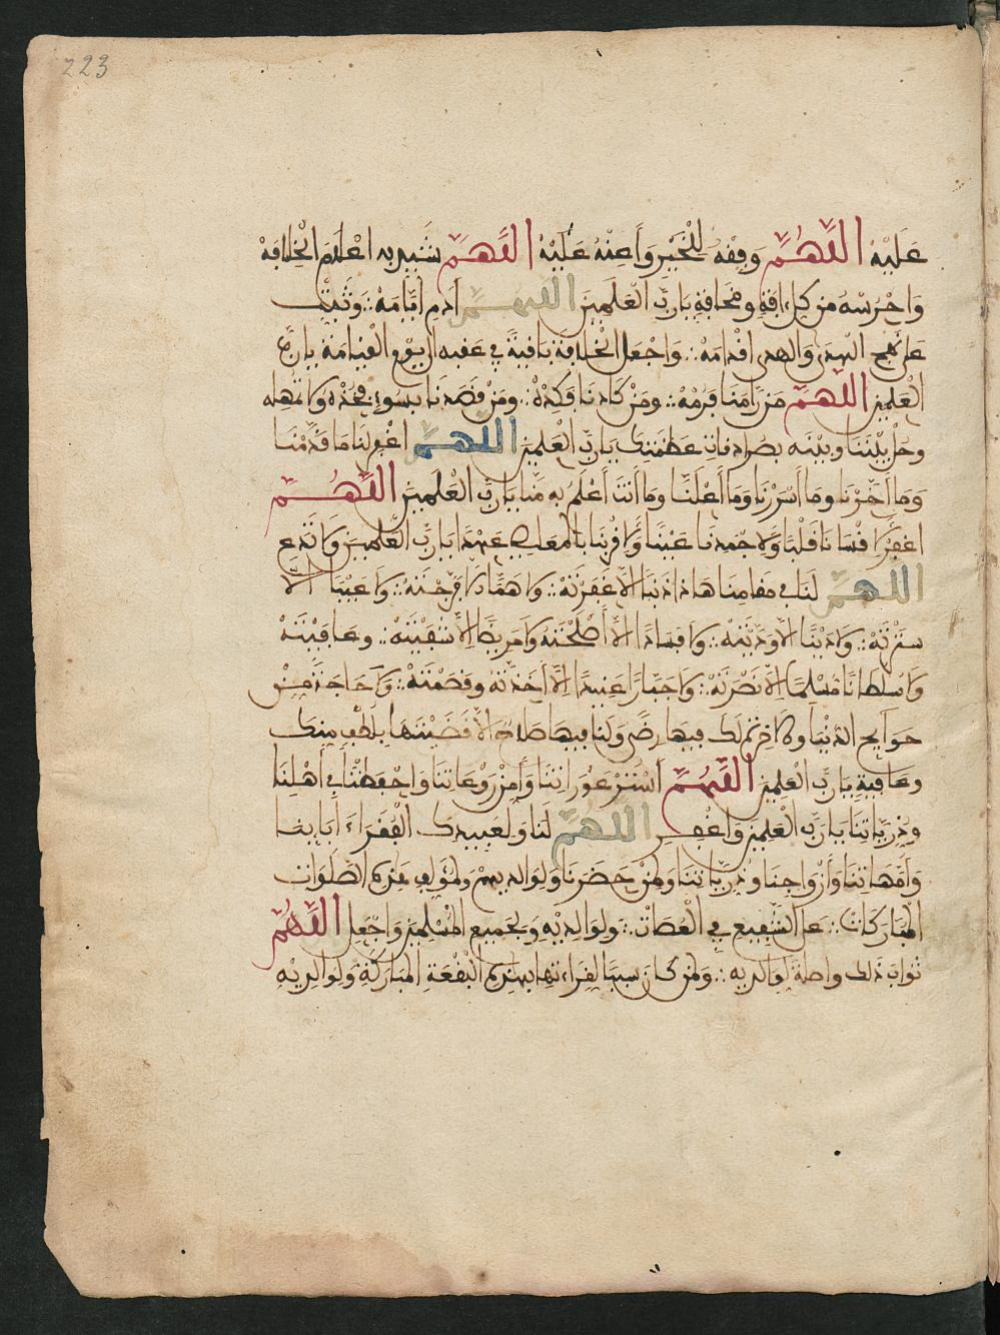 223
عَلَيْهِ اللَّهُمَّ وَفِّقْهُ لِلْخَيْرِ وَأَعِنْهُ عَلَيْهِ اللَّهُمَّ شَيِّد بِهِ اعْلَامَ الْخِلَافَهْ
وَاحْرُسْهُ مِن كل ءافة ومخافة يا ربّ العلمين اللهم ادم ايامه وَثَبِّت
على نهج الهدى اقدامه وَاجْعَل الخلافة باقية في عقبه الى يوم القيامة يا ربّ
العلمين اللهم مَن رَامَنَا فَرُمْهُ ومن كادنا فكده ومن قصدنا بسوء فخذه ولا تمهله
وحل بيننا وبينه يا ربّ العلمين اللهم اغفر لنا ما قدّمنا
وَمَا أَخَّرْنَا وَمَا أَسْرَرْنَا وَمَا أَعْلَنَّا وما أنت أَعْلَمُ بِهِ منّا يا ربّ العلمين اللهم
يا ربّ العلمين ولا تدع
اللهم لنا في مقامنا هاذا ذنبا الا غفرته ولا همّا الا فرجته ولا عيبا الا
سترته ولا دينا الا وديته ولا فسادا الا أصلحته ولا مريضا الا شفيته وعافيته
ولا سلطانا مسلما الا نصرته ولا جبارا عنيدا الا أخذته وقصمته ولا حاجة من
حوايج الدنيا والاخرة لك فيها رضى ولنا فيها صلاح الا قضيتها بلطف منك
وعافية يا ربّ العلمين اللهم استر عوراتنا وأمن روعاتنا واحفظنا في أهلنا
وذرياتنا يا ربّ العلمين واغفر اللهم لنا ولعبيدك الفقراء ءاباينا
وأمهاتنا وأزواجنا وذرياتنا ولمن حضرنا ولوالديهم ولمؤلف هذه الصلوات
المباركات على الشفيع في العصات ولوالديه ولجميع المسلمين واجعل اللهم
ثواب ذلك واصلة لوالديه ولمن كان سببا لقراءتها بهذه البقعة المباركة ولوالديه